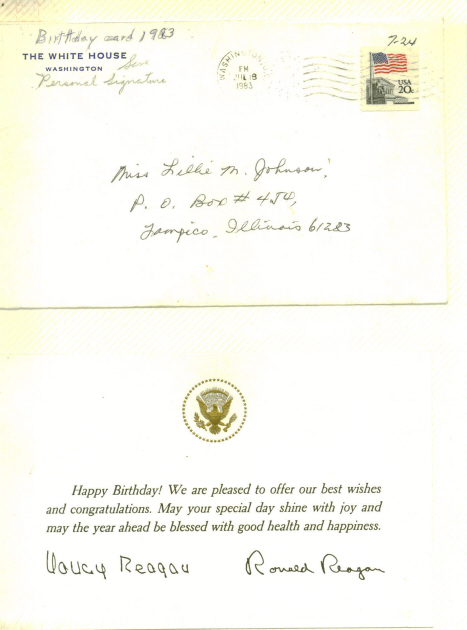 Birthday card 1983
7-24
THE WHITE HOUSE
WASHINGTON
Save
Personal Signature
WASHINGTON, DC
PM
JUL 18
1983
USA
20c
Miss Lillie M. Johnson,
P. O. Box # 454,
Tampico, Illinois 61283
Happy Birthday! We are pleased to offer our best wishes
and congratulations. May your special day shine with joy and
may the year ahead be blessed with good health and happiness.
Nancy Reagan Ronald Reagan